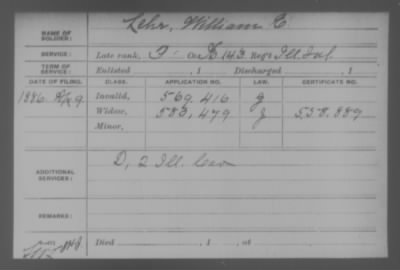 NAME OF SOLDIER: Lehr, William C
SERVICE: Late rank, Co. K 143 Reg't Ill. Inf.
TERM OF SERVICE: Enlisted , 1 Discharged , 1
DATE OF FILING. CLASS. APPLICATION NO. LAW. CERTIFICATE NO.
1886 Apr 9 Invalid, 569.416 g
Widow, 583,479 g 558.889
Minor,
ADDITIONAL SERVICES: D, 2 Ill. Cav
REMARKS:
Died , 1 , at